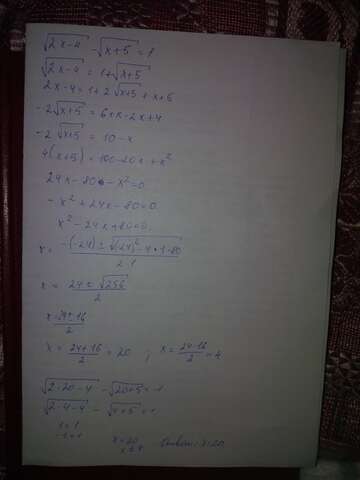 √2x-4 - √x+5 = 1
√2x-4 = 1+√x+5
2x-4 = 1+2√x+5 + x+5
-2√x+5 = 6+x-2x+4
-2√x+5 = 10-x
4(x+5) = 100-20x+x²
24x-80-x²=0
-x²+24x-80=0
x²-24x+80=0
x = -(-24)±√(-24)²-4·1·80 / 2·1
x = 24±√256 / 2
x = 24±16 / 2
x = 24+16 / 2 = 20 ; x = 24-16 / 2 = 4
√2·20-4 - √20+5 = 1
√2·4-4 - √4+5 = 1
1=1
-1=1
x=20
x≠4
x=20